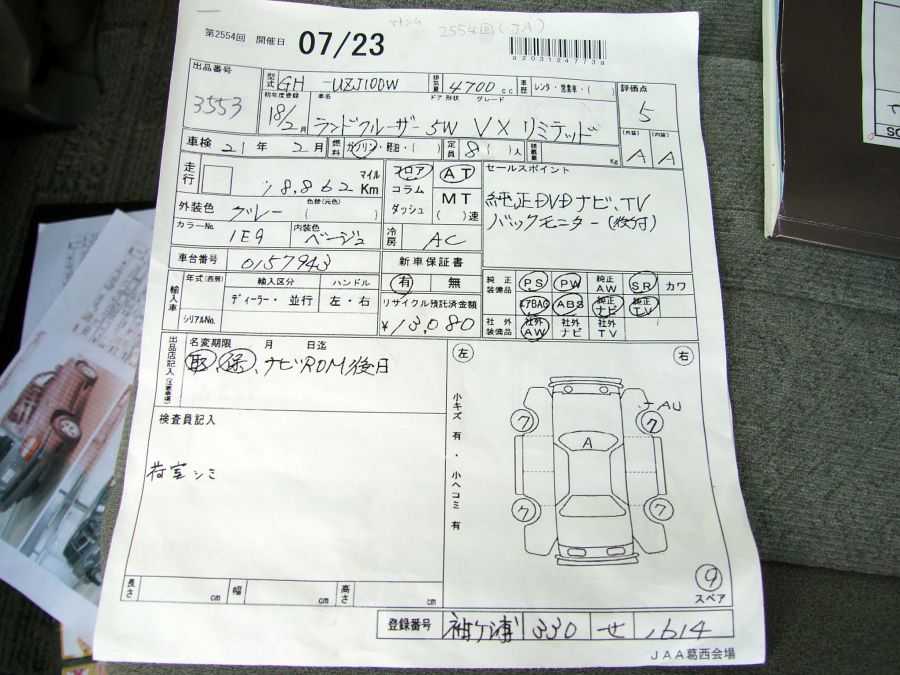 2554回(JA)
第2554回 開催日 07/23
出品番号 3553
型式 GH -UZJ100W 排気量 4700 cc 車歴 レンタ・営業車・( ) 評価点 5
初年度登録 18/2月 車名 ドア 形状 グレード ランドクルーザー 5W VX リミテッド (外装) A (内装) A
車検 21年 2月 燃料 ガソリン・軽油・( ) 定員 8( )人 積載量 Kg
走行 18,862 マイル Km フロア コラム ダッシュ AT MT ( )速
セールスポイント
純正DVDナビ、TV
バックモニター(枚付)
外装色 グレー 色替(元色) ( )
カラーNo. 1E9 内装色 ベージュ 冷房 AC
車台番号 0157943 新車保証書 有 無
純正装備品 PS PW 純正AW SR カワ
エアBAG ABS 純正ナビ 純正TV
社外装備品 社外AW 社外ナビ 社外TV
輸入車 年式(西暦) 輸入区分 ハンドル
ディーラー・並行 左・右
シリアルNo.
リサイクル預託済金額
¥13,080
出品店記入(注意事項) 名変期限 月 日迄
取、保、ナビROM後日
検査員記入
荷室シミ
左 右
小キズ 有・小ヘコミ 有
JAU
ク ク
A
ク ク
9
スペア
長さ cm 幅 cm 高さ cm
登録番号 袖ヶ浦 330 せ 1614
JAA葛西会場